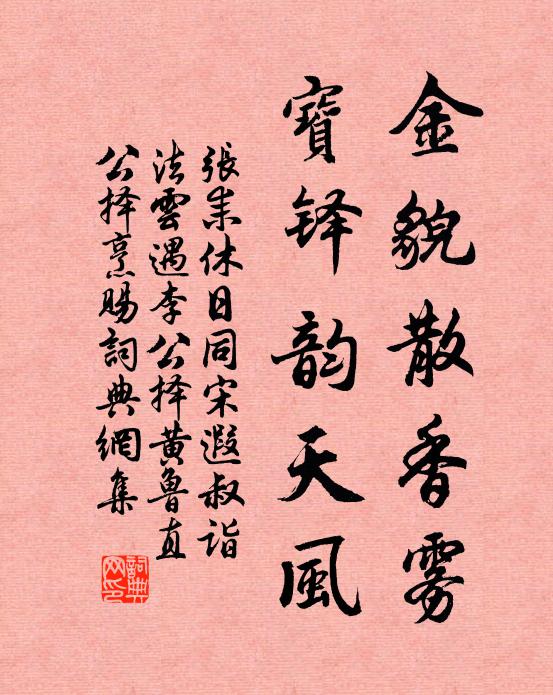 金貎散香雾
寶铎韵天風
張耒休日同宋遐叔詣
法雲遇李公择黄魯直
公择烹賜詞典網集
詞典
网印